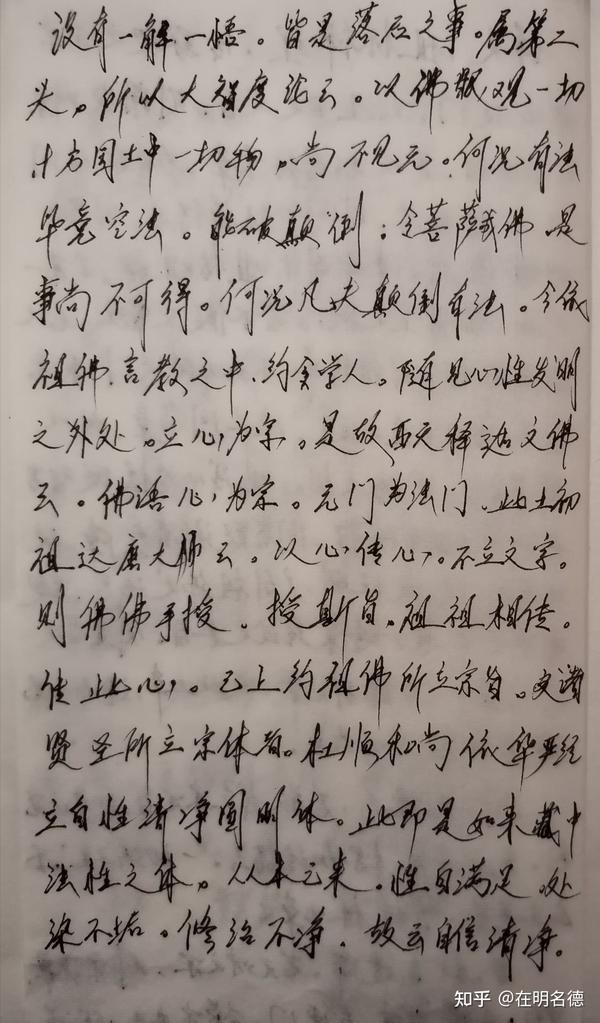 没有一解一悟。皆是落后之事。属第二
头。所以大智度论云。以佛眼观一切
十方国土中一切物。尚不见无。何况有法
毕竟空法。能破颠倒。令菩萨成佛。是
事尚不可得。何况凡夫颠倒有法。今依
祖佛言教之中.约今学人。随见心性发明
之外处。立心为宗。是故西天释迦文佛
云。佛语心为宗。无门为法门.此土初
祖达磨大师云。以心传心。不立文字。
则佛佛手授.授斯旨。祖祖相传。
传此心。已上约祖佛所立宗旨。又诸
贤圣所立宗体者。杜顺和尚依华严经
立自性清净圆明体。此即是如来藏中
法性之体。从本已来.性自满足.处
染不垢。修治不净.故云自信清净。
知乎 @在明名德